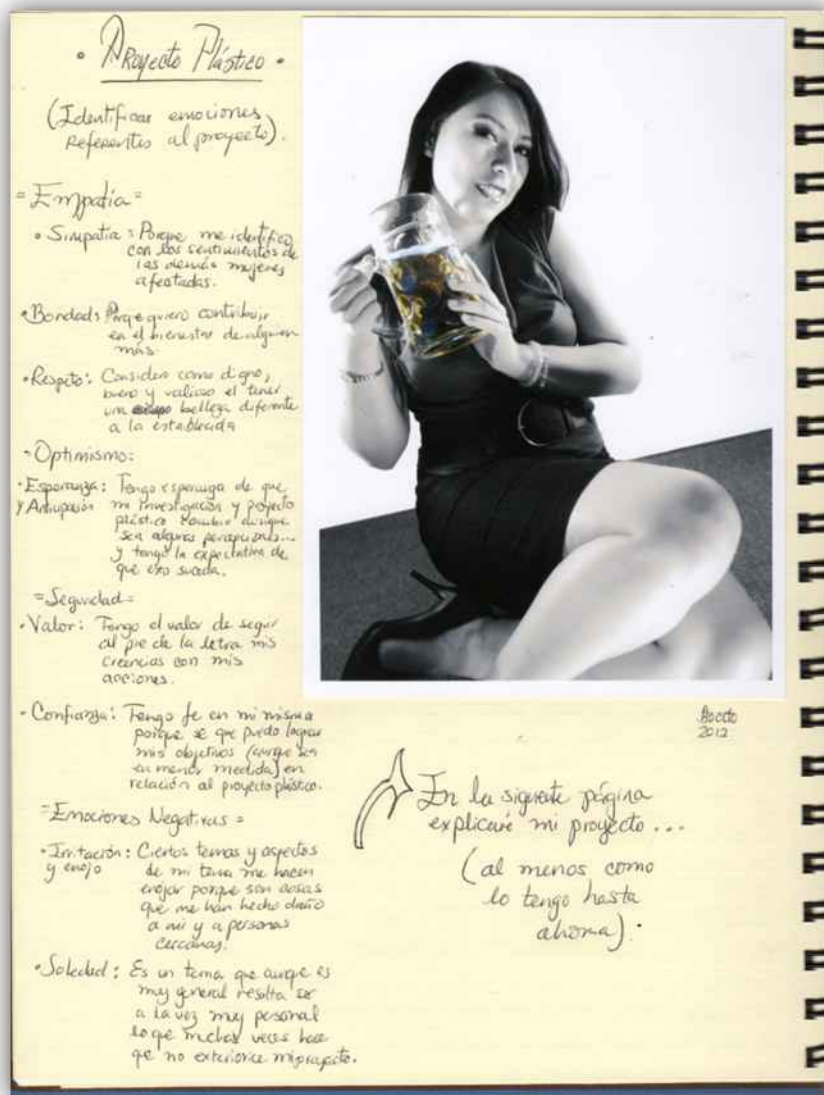 • Proyecto Plástico •
(Identificar emociones
referentes al proyecto).
= Empatía =
• Simpatía: Porque me identifico
con los sentimientos de
las demás mujeres
afectadas.
• Bondad: Porque quiero contribuir
en el bienestar de alguien
más.
• Respeto: Considero como digno,
bueno y valioso el tener
una belleza diferente
a la establecida
- Optimismo:
• Esperanza: Tengo esperanza de que
y Anticipación mi investigación y proyecto
plástico cambie aunque
sea algunas percepciones...
y tengo la expectativa de
que eso suceda.
= Seguridad =
• Valor: Tengo el valor de seguir
al pie de la letra mis
creencias con mis
acciones.
• Confianza: Tengo fe en mi misma
porque se que puedo lograr
mis objetivos (aunque sea
en menor medida) en
relación al proyecto plástico.
= Emociones Negativas =
• Irritación: Ciertos temas y aspectos
y enojo de mi tema me hacen
enojar porque son cosas
que me han hecho daño
a mi y a personas
cercanas.
• Soledad: Es un tema que aunque es
muy general resulta ser
a la vez muy personal
lo que muchas veces hace
que no exteriorice mi proyecto.
2012
En la siguiente página
explicaré mi proyecto...
(al menos como
lo tengo hasta
ahora).